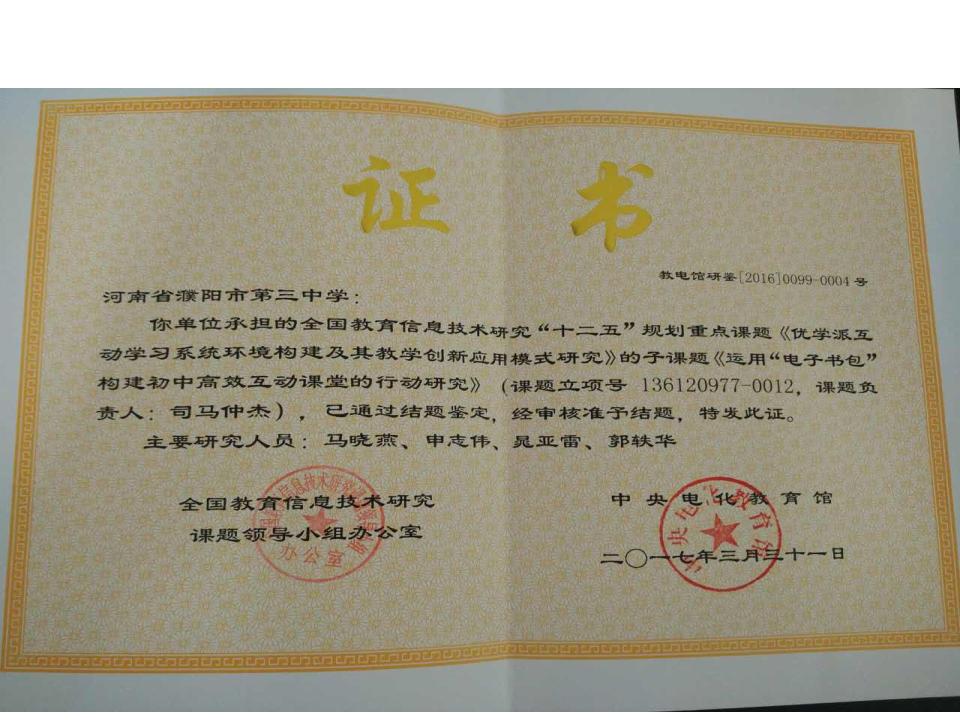 证 书
教电馆研鉴[2016]0099-0004 号
河南省濮阳市第三中学：
你单位承担的全国教育信息技术研究“十二五”规划重点课题《优学派互
动学习系统环境构建及其教学创新应用模式研究》的子课题《运用“电子书包”
构建初中高效互动课堂的行动研究》（课题立项号 136120977-0012，课题负
责人：司马仲杰），已通过结题鉴定，经审核准予结题，特发此证。
主要研究人员：马晓燕、申志伟、晁亚雷、郭轶华
全国教育信息技术研究
课题领导小组办公室
办公室
中央电化教育馆
二〇一七年三月三十一日
中央电化教育馆